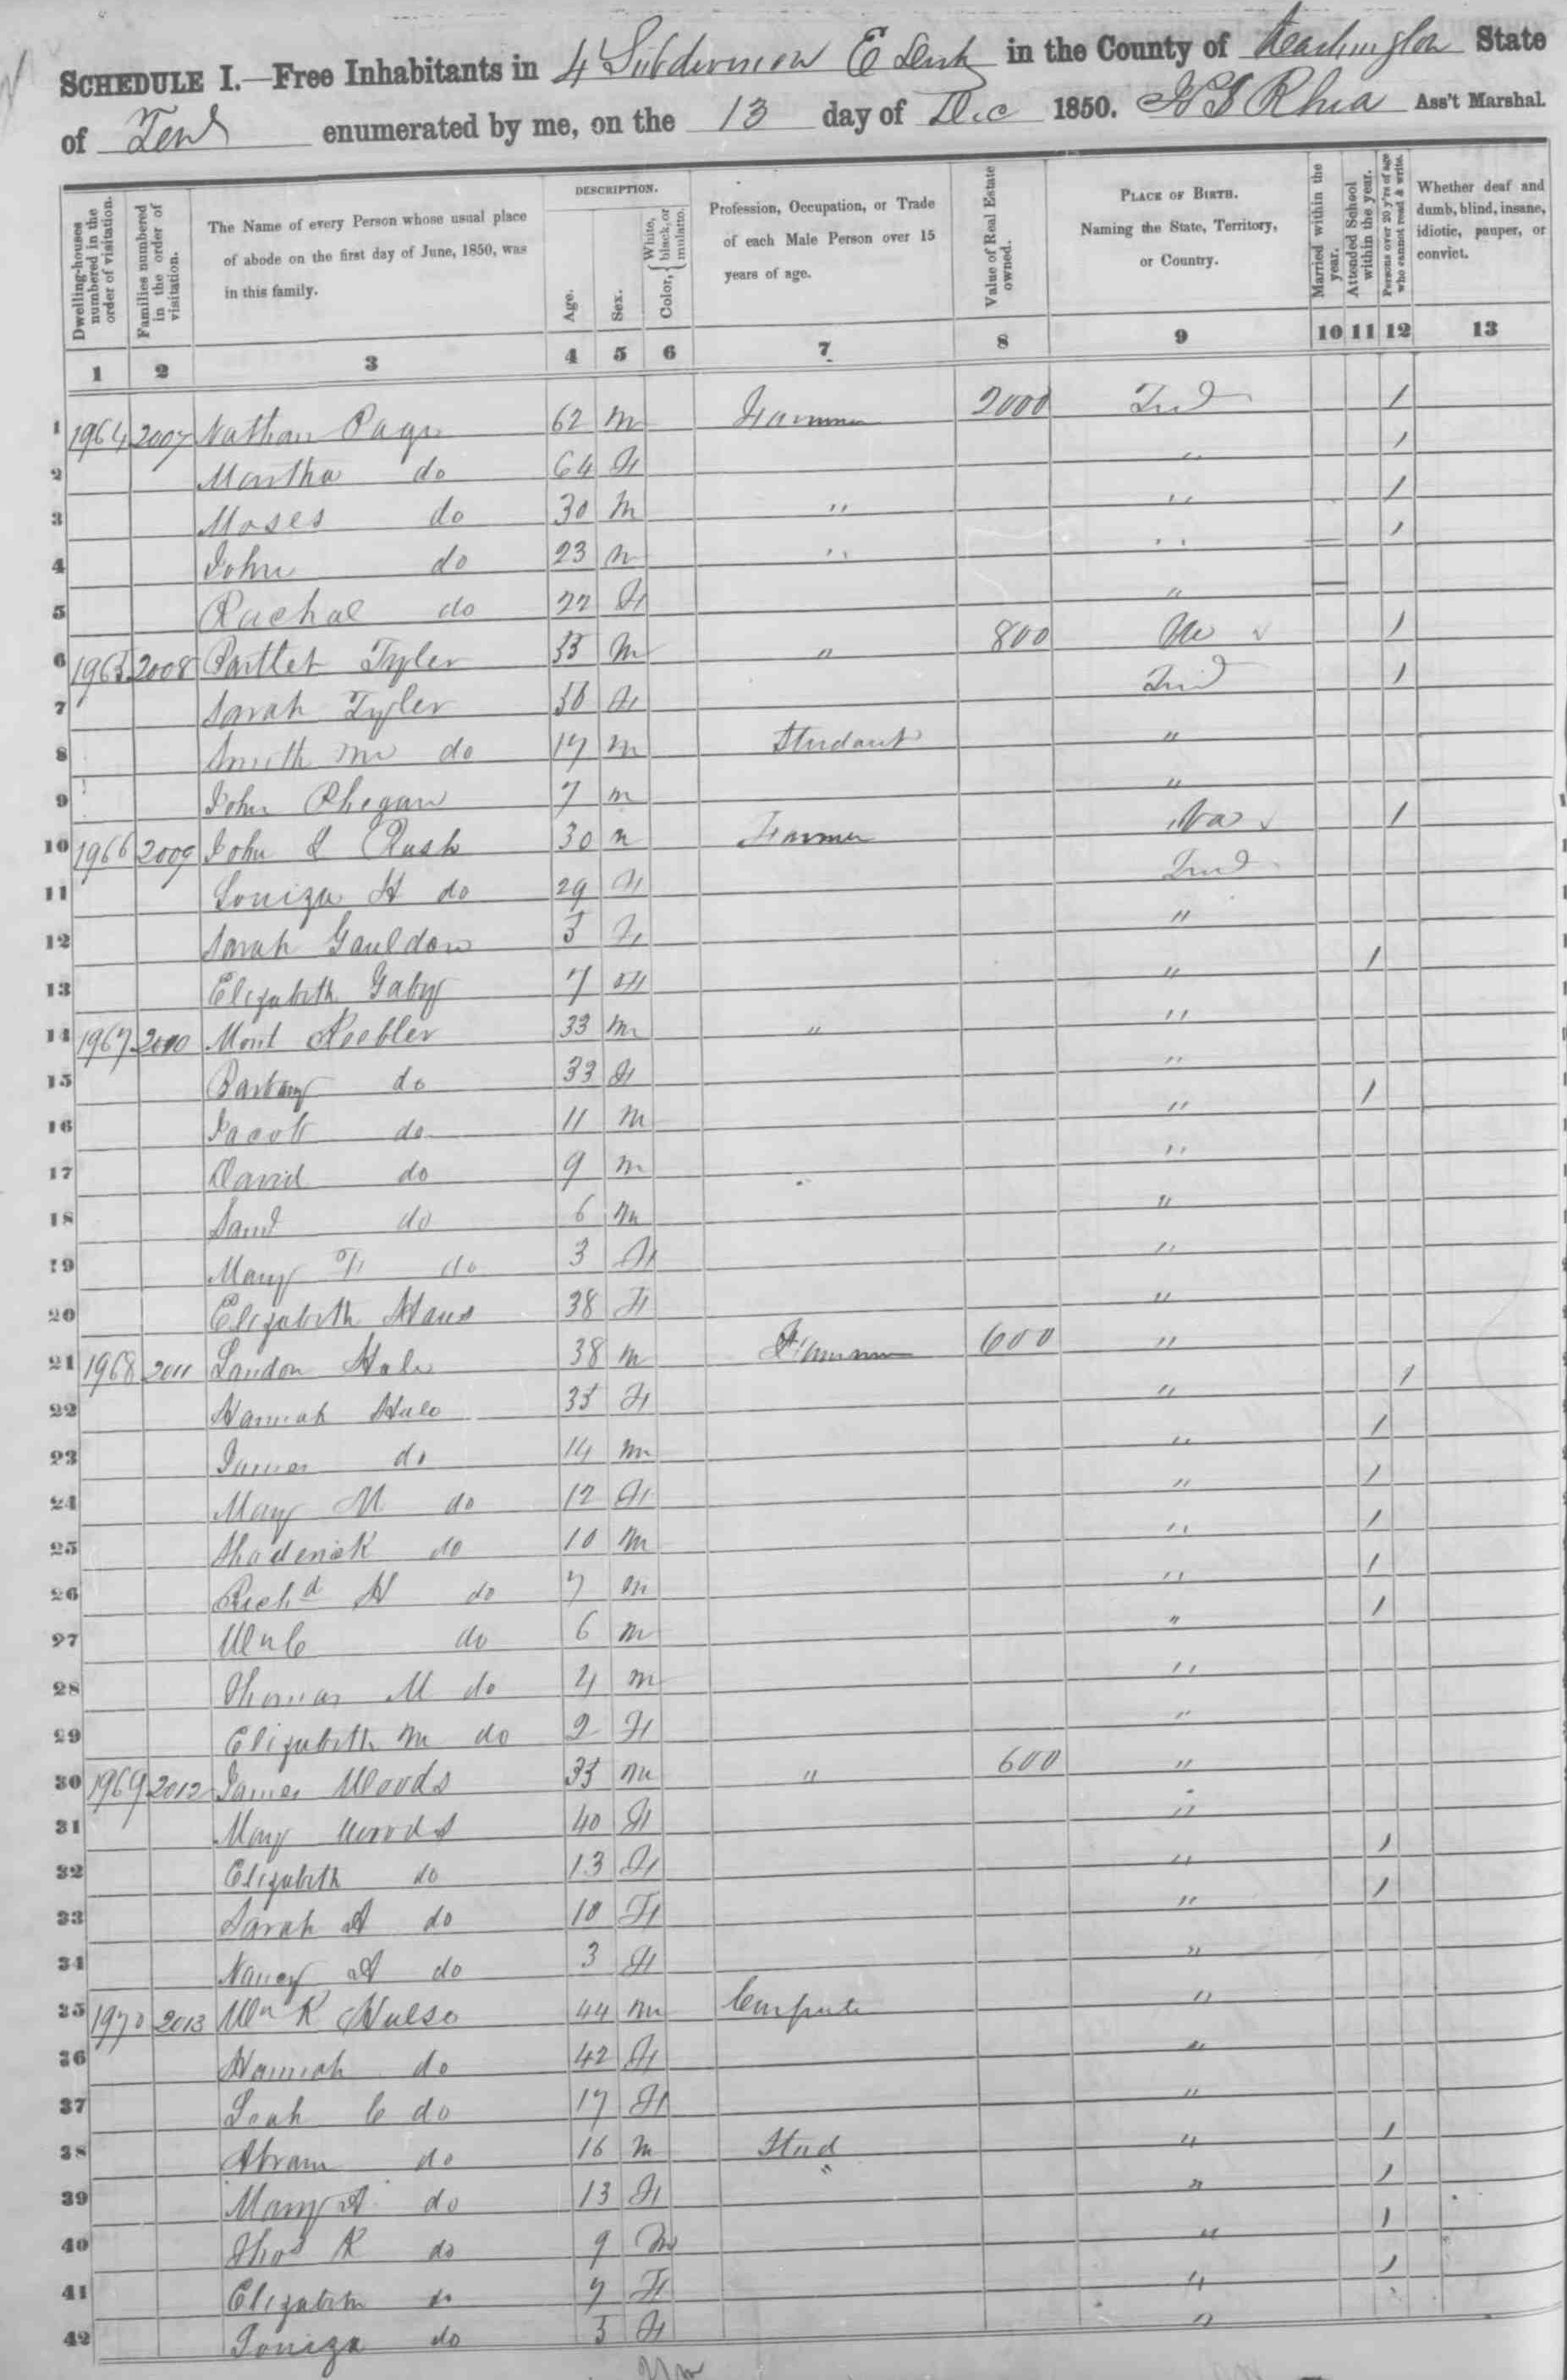 SCHEDULE I.—Free Inhabitants in 4 Subdivision E Dist in the County of Washington State
of Ten enumerated by me, on the 13 day of Dec 1850. Rhea Ass't Marshal.
DESCRIPTION.
Dwelling-houses numbered in the order of visitation.
Families numbered in the order of visitation.
The Name of every Person whose usual place of abode on the first day of June, 1850, was in this family.
Age.
Sex.
Color, { White, black, or mulatto.
Profession, Occupation, or Trade of each Male Person over 15 years of age.
Value of Real Estate owned.
PLACE OF BIRTH. Naming the State, Territory, or Country.
Married within the year.
Attended School within the year.
Persons over 20 y'rs of age who cannot read & write.
Whether deaf and dumb, blind, insane, idiotic, pauper, or convict.
1 2 3 4 5 6 7 8 9 10 11 12 13
1 1964 2007 Nathan 62 m Farmer 2000 Ten /
2 Martha do 64 F " /
3 Moses do 30 m " " /
4 John do 23 m " " /
5 Rachal do 22 F "
6 1965 2008 Bartlet Tyler 35 m " 800 /
7 Sarah Tyler F Ten /
8 Smith do 17 m Student "
9 John 7 m "
10 1966 2009 John Rush 30 m Farmer Va /
11 Louiza H do 29 F Ten
12 Sarah Gauldon 5 F "
13 Elizabeth Gaby 7 F " /
14 1967 2010 33 m " "
15 do 33 F "
16 Jacob do 11 m " /
17 David do 9 m "
18 Saml do 6 m "
19 Mary do 3 F "
20 Elizabeth 38 F "
21 1968 2011 Landon Hale 38 m Farmer 600 "
22 Hannah Hale 35 F " /
23 James do 14 m " /
24 Mary M do 12 F " /
25 Shaderick do 10 m " /
26 Richd H do 7 m " /
27 Wm C do 6 m " /
28 Thomas M do 4 m "
29 Elizabeth M do 2 F "
30 1969 2012 James Woods 35 m " 600 "
31 Mary Woods 40 F "
32 Elizabeth do 13 F " /
33 Sarah A do 10 F " /
34 Nancy A do 3 F "
35 1970 2013 Wm R Hulse 44 m "
36 Hannah do 42 F "
37 Leah C do 17 F "
38 Abram do 16 m Stud " /
39 Mary A do 13 F " " /
40 Thos R do 9 M " /
41 Elizabeth do 7 F " /
42 Louiza do 5 F "